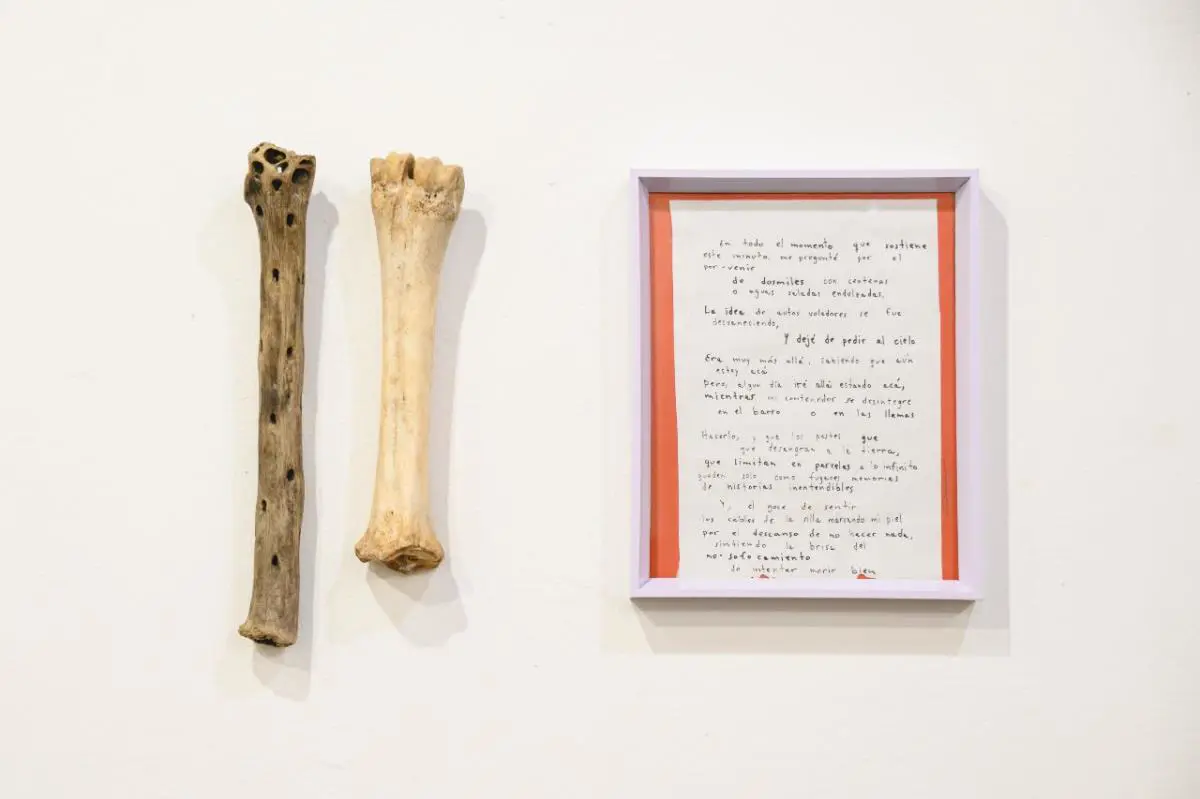 En todo el momento que sostiene
este minuto, me pregunté por el
por-venir
de dosmiles con centenas
o aguas saladas endulzadas.
La idea de autos voladores se fue
desvaneciendo,
Y dejé de pedir al cielo
Era muy más allá, sabiendo que aún
estoy acá
Pero, algun día iré allá estando acá,
mientras mi contenedor se desintegre
en el barro o en las llamas
Hacerlo, y que los postes que
que desangran a la tierra,
que limitan en parcelas a lo infinito
queden solo como fugaces memorias
de historias inentendibles
Y, el goce de sentir
los cables de la silla marcando mi piel
por el descanso de no hacer nada,
sintiendo la brisa del
no-sofocamiento
de intentar morir bien